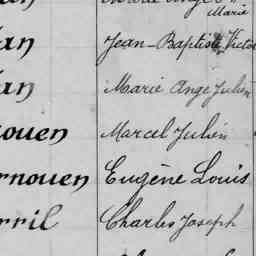 Marie
an Jean-Baptiste Victor
an Marie Ange Julien
ouen Marcel Julien
rnouen Eugène Louis
rril Charles Joseph